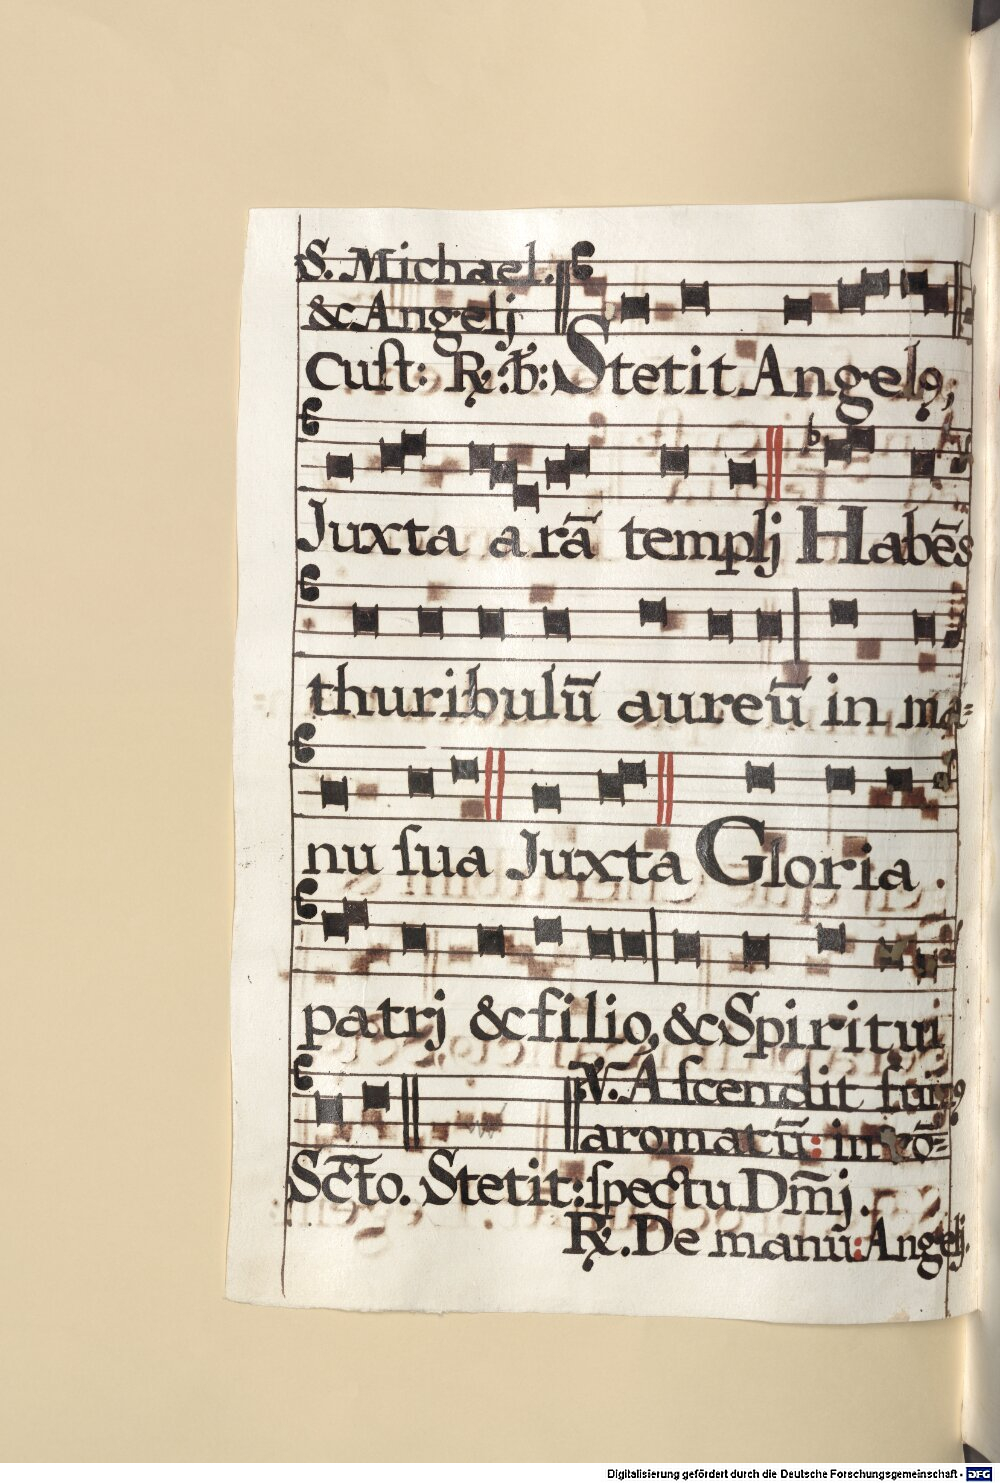 S. Michael.
&c Angelj
Cust: ℟. b: Stetit Angelꝰ,
Juxta arā templj Habēs
thuribulū aureū in ma=
nu sua Juxta Gloria.
patrj &c filio, &c Spiritui
℣. Ascendit fumꝰ
aromatū: in cō=
Sc̄to. Stetit: spectu Dm̄j.
℟. De manu: Angelj.
Digitalisierung gefördert durch die Deutsche Forschungsgemeinschaft - DFG